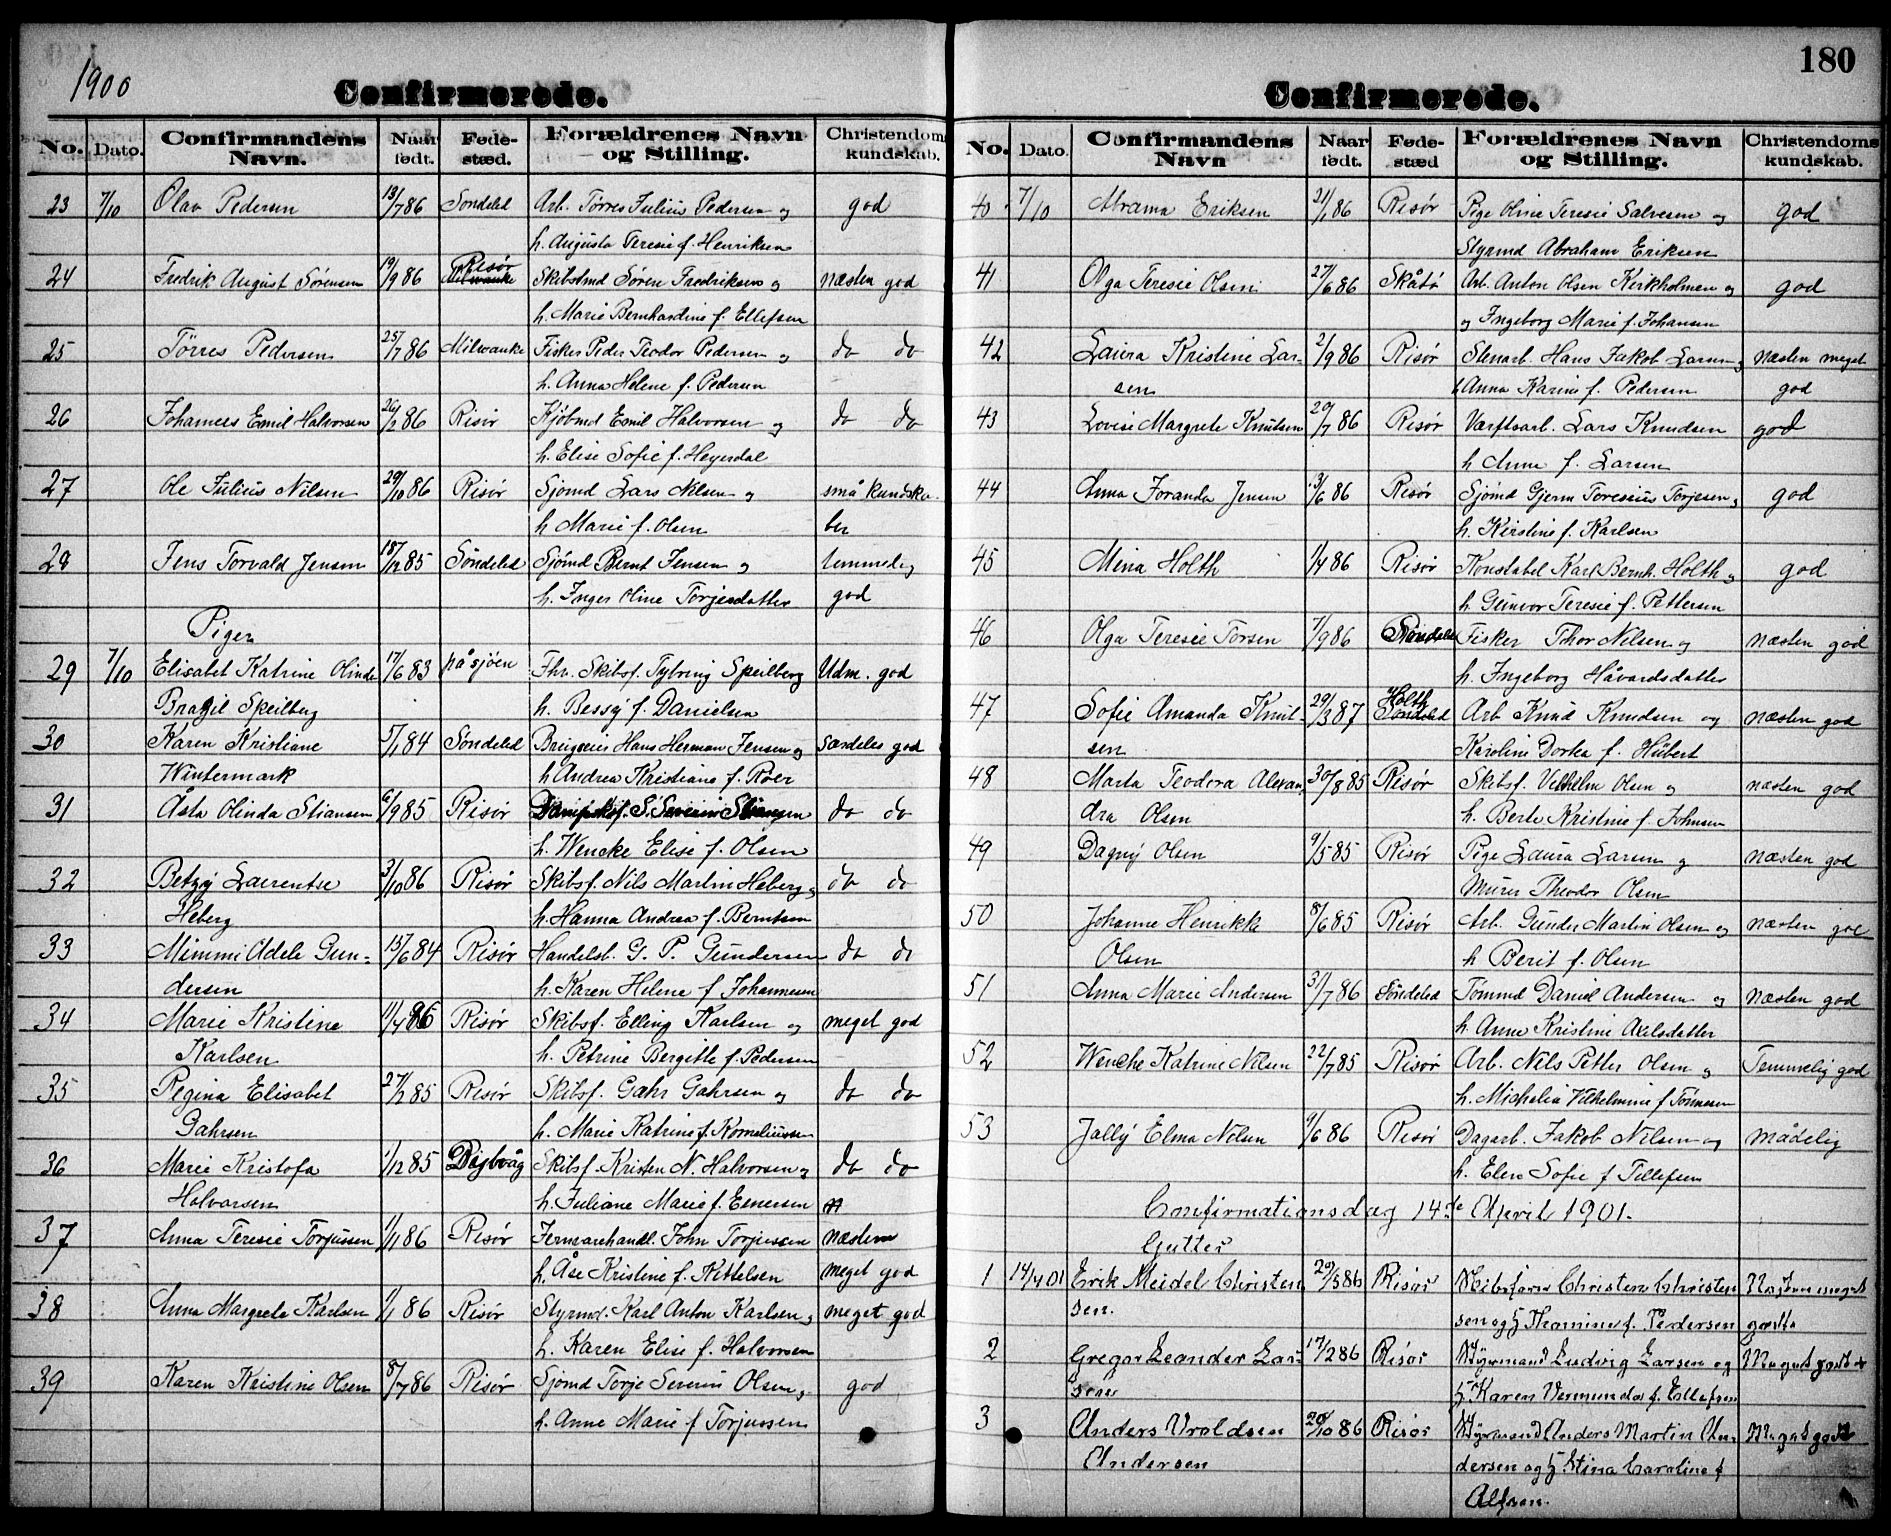 1900
Confirmerede.
No. Dato. Confirmandens Navn. Naar født. Føde-stæd. Forældrenes Navn og Stilling. Christendoms kundskab.
23 7/10 Olav Pedersen 13/7 86 Søndeled Arb. Tørres Julius Pedersen og god
h. Augusta Teresie f. Henriksen
24 Fredrik August Sørensen 19/9 86 Risør Skibstmd Søren Fredriksen og næsten god
h. Marie Bernhardine f. Ellefsen
25 Tørres Pedersen 25/7 86 Milwauke Fisker Peder Teodor Pedersen og do do
h. Anna Helene f. Pedersen
26 Johannes Emil Halvorsen 26/2 86 Risør Kjøbmd Emil Halvorsen og do do
h. Elise Sofie f. Heyerdal
27 Ole Julius Nilsen 29/10 86 Risør Sjømd Lars Nilsen og små kundska-
h Marie f. Olsen ber
28 Jens Torvald Jensen 18/12 85 Søndeled Sjømd Bernt Jensen og temmelig
h. Inger Oline Torjesdatter god
Piger
29 7/10 Elisabet Katrine Olinde 17/6 83 på sjøen Fhv. Skibsf. Tybring Speilberg Udm. god
Brazil Speilberg h. Bessy f. Danielsen
30 Karen Kristiane 5/1 84 Søndeled Brugseier Hans Herman Jensen og Særdeles god
Wintermark h Andrea Kristiane f. Roer
31 Åsta Olinda Stiansen 6/9 85 Risør Dampskbsf. S. Severin Stiansen do do
h. Wencke Elise f. Olsen
32 Betzy Laurentse 3/10 86 Risør Skibsf. Nils Martin Heberg og do do
Heberg h. Hanna Andrea f. Berntsen
33 Mimmi Adele Gun- 15/6 84 Risør Handelsb. G. P. Gundersen do do
dersen h. Karen Helene f Johannesen
34 Marie Kristine 11/4 86 Risør Skibsf. Elling Karlsen og meget god
Karlsen h. Petrine Bergitte f. Pedersen
35 Regina Elisabet 27/2 85 Risør Skibsf. Gahr Gahrsen og do do
Gahrsen h. Marie Katrine f. Korneliussen
36 Marie Kristofa 1/12 85 Dybvåg Skibsf. Kristen N. Halvorsen og do do
Halvorsen h. Juliane Marie f. Evensen
37 Anna Teresie Torjussen 1/1 86 Risør Jernvarehandl. John Torjussen næsten
h. Åse Kristine f. Kittelsen meget god
38 Anna Margrete Karlsen 1/1 86 Risør Styrmd. Karl Anton Karlsen og meget god
h. Karen Elise f. Halvorsen
39 Karen Kristine Olsen 8/7 86 Risør Sjømd Torje Severin Olsen og god
h. Anne Marie f Torjussen
180
Confirmerede.
No. Dato. Confirmandens Navn Naar født. Føde-stæd Forældrenes Navn og Stilling. Christendoms kundskab.
40 7/10 Abrama Eriksen 21/1 86 Risør Pige Oline Teresie Salvesen og god
Styrmd Abraham Eriksen
41 Olga Teresie Olsen 27/6 86 Skåtø Arb. Anton Olsen Kirkholmen og god
og Ingeborg Marie f. Johansen
42 Laura Kristine Lar- 2/9 86 Risør Stenarb. Hans Jakob Larsen og næsten meget
sen h Anna Karine f. Pedersen god
43 Lovise Margrete Knutsen 20/7 86 Risør Værftsarb. Lars Knudsen god
h Anne f. Larsen
44 Anna Joranda Jensen 3/6 86 Risør Sjømd Gjerm Teresius Torjesen og god
h. Kirstine f. Karlsen
45 Mina Holth 1/4 86 Risør Konstabel Karl Bernh. Holth og god
h Gunvor Teresie f. Pettersen
46 Olga Teresie Torsen 7/9 86 Søndeled Fisker Thor Nilsen og næsten god
h. Ingeborg Håvardsdatter
47 Sofie Amanda Knut- 29/3 87 Holth Søndeled Arb Knud Knudsen og næsten god
sen Karoline Dorka f. Hubert
48 Marta Teodora Alexan- 30/8 85 Risør Skibsf. Vilhelm Olsen og næsten god
dra Olsen h. Berte Kristine f. Johnsen
49 Dagny Olsen 9/5 85 Risør Pige Laura Larsen og næsten god
Murer Theodor Olsen
50 Johanne Henrikke 8/6 85 Risør Arb. Gunder Martin Olsen og næsten god
Olsen h Berit f. Olsen
51 Anna Marie Andersen 31/7 86 Søndeled Tømmd Daniel Andersen og næsten god
h. Anne Kristine Axelsdatter
52 Wenche Katrine Nilsen 22/7 85 Risør Arb. Nils Petter Olsen og Temmelig god
h. Michelia Vilhelmine f Tønnesen
53 Jally Elma Nilsen 9/6 86 Risør Dagarb. Jakob Nilsen og mådelig
h. Elen Sofie f Tellefsen
Confirmationsdag 14de April 1901.
Gutter
1 14/4 01 Erik Meidel Christen 29/5 86 Risør Skibsfører Christen Christen Næsten meget
sen. sen og h Thamine f. Pedersen godt
2 Gregor Leander Lar- 17/2 86 Risør Styrmand Ludvig Larsen og Meget godt
sen h Karen Vermunda f. Ellefsen
3 Anders Vroldsen 20/10 86 Risør Styrmand Anders Martin An- Meget godt
Andersen dersen og h Stina Caroline f
Alfsen.